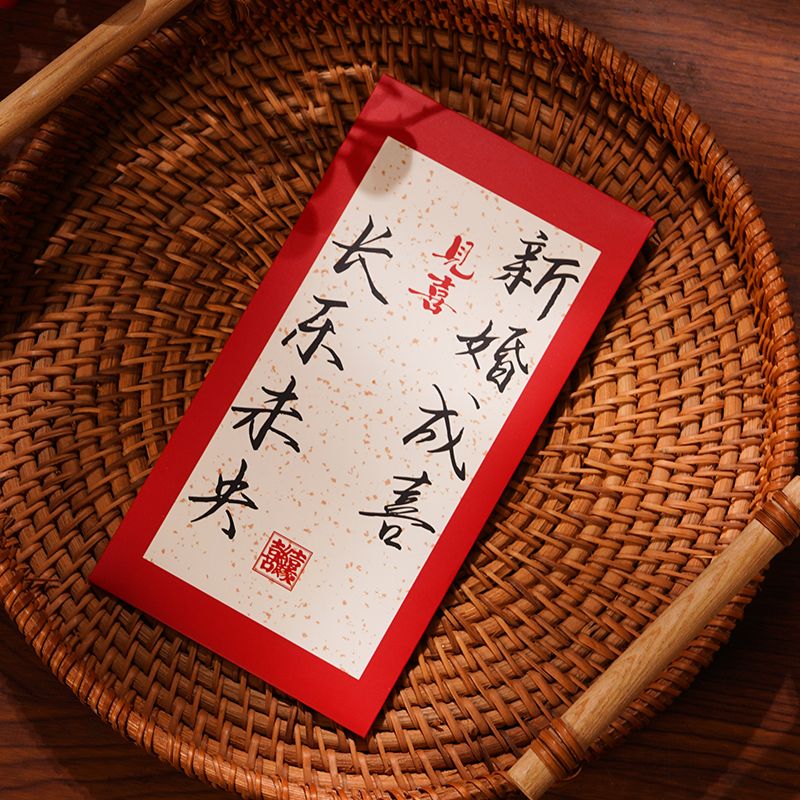 新婚成喜
见喜
长乐未央